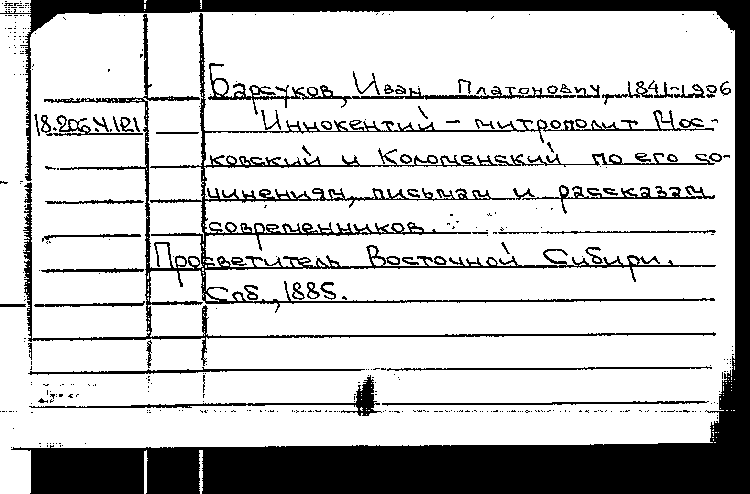 Барсуков, Иван Платонович, 1841-1906
18.206.4.121. Иннокентий - митрополит Мос-
ковский и Коломенский по его со-
чинениям, письмам и рассказам
современников.
Просветитель Восточной Сибири.
Спб., 1885.